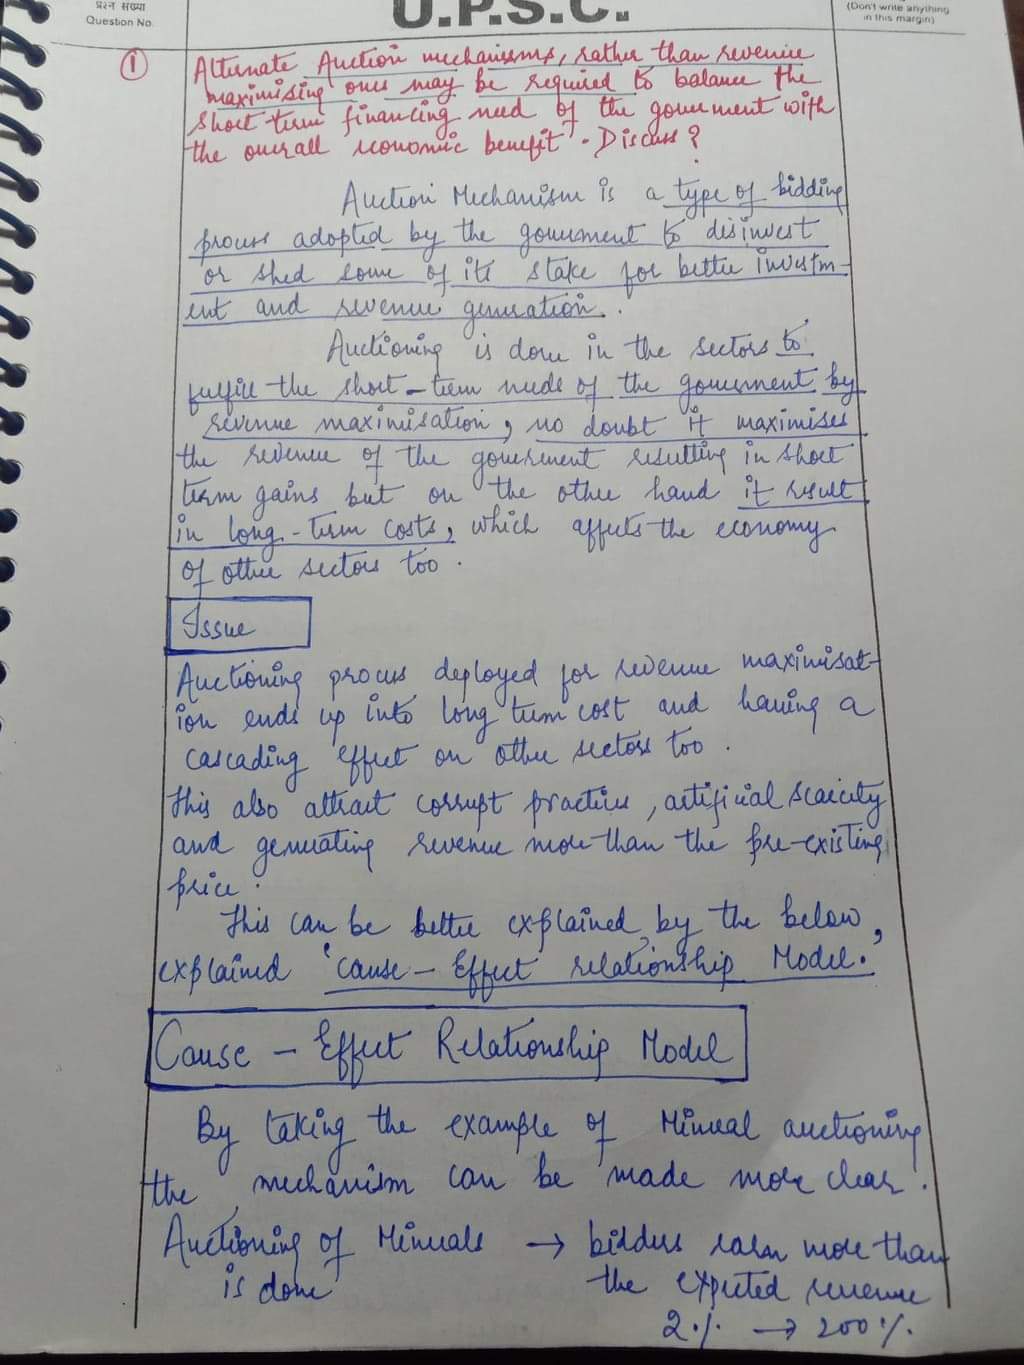 प्रश्न संख्या
Question No.
U.P.S.C.
(Don't write anything
in this margin)
① Alternate Auction mechanisms, rather than revenue
maximising ones may be required to balance the
short term financing need of the government with
the overall economic benefit. Discuss?
Auction Mechanism is a type of bidding
process adopted by the government to disinvest
or shed some of its stake for better investm-
ent and revenue generation.
Auctioning is done in the sectors to
fulfill the short-term needs of the government by
revenue maximisation, no doubt it maximises
the revenue of the government resulting in short
term gains but on the other hand it result
in long-term costs, which affects the economy
of other sectors too.
Issue
Auctioning process deployed for revenue maximisat-
ion ends up into long term cost and having a
cascading effect on other sectors too.
This also attract corrupt practices, artificial scarcity
and generating revenue more than the pre-existing
price.
This can be better explained by the below
explained 'cause-Effect relationship Model.'
Cause - Effect Relationship Model
By taking the example of Mineral auctioning
the mechanism can be made more clear.
Auctioning of Minerals → bidders earn more than
is done the expected revenue
2% → 200%